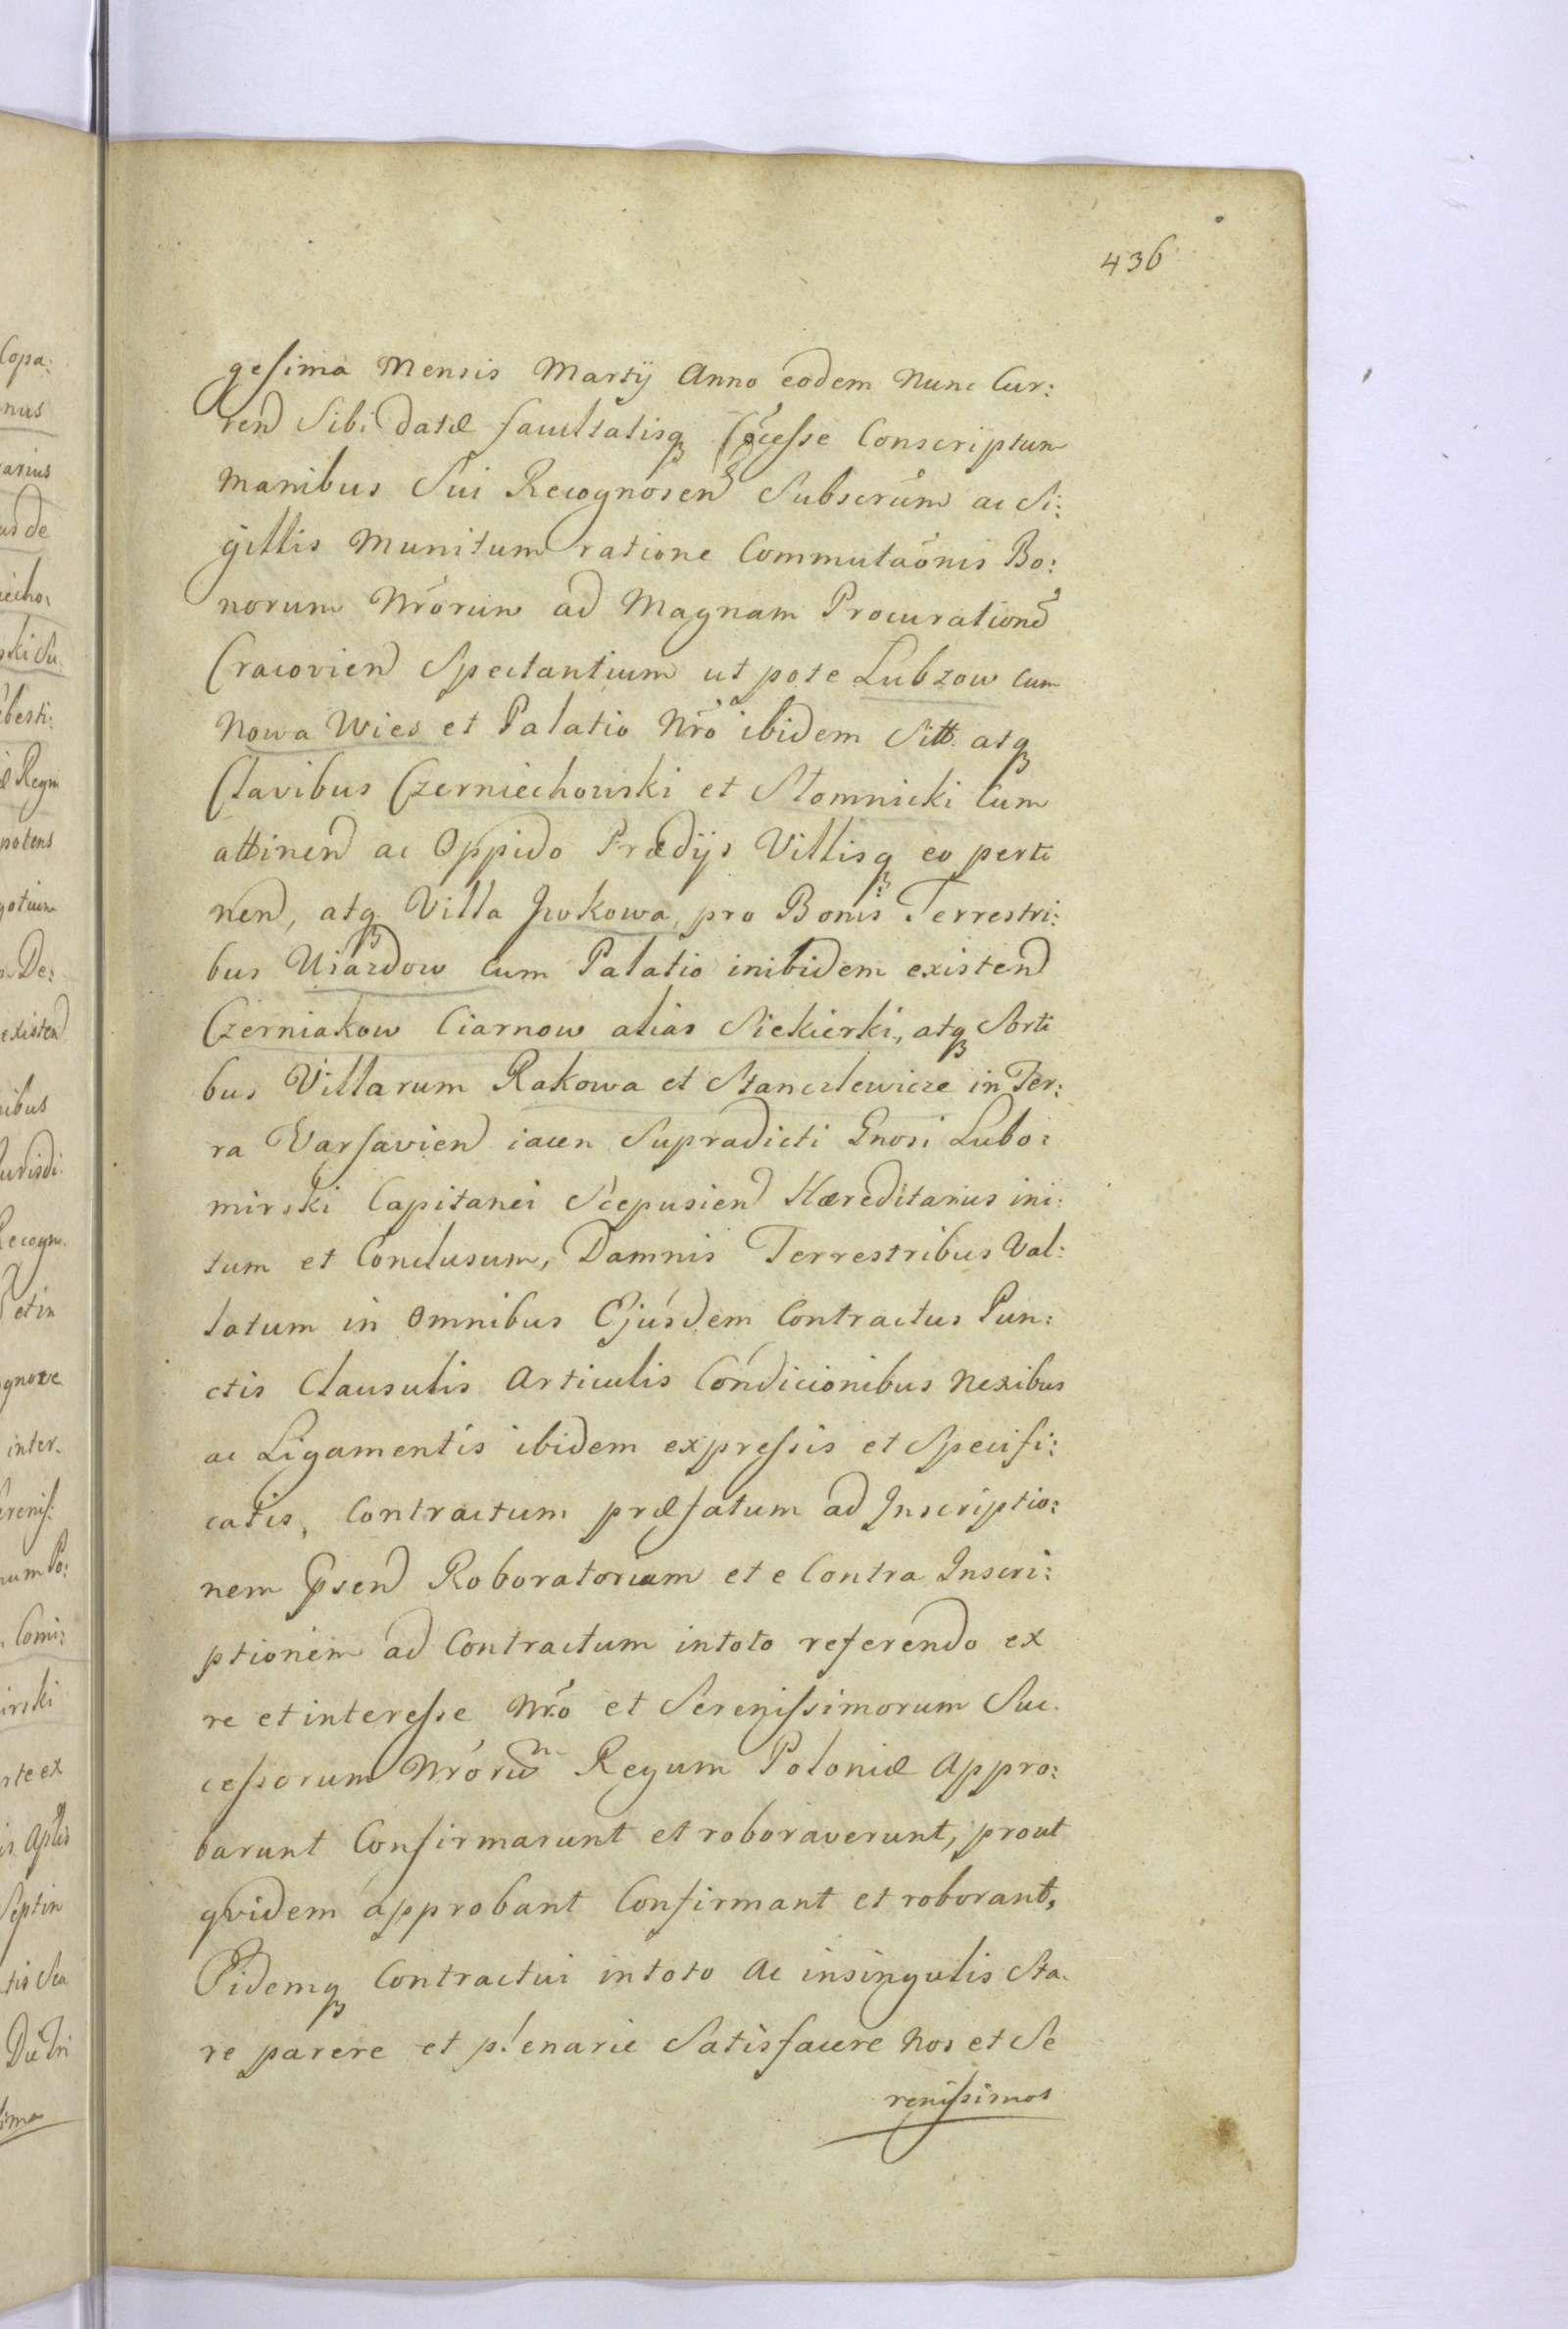 436
gesima Mensis Martij Anno eodem Nunc Cur:
rend Sibi datæ facultatisq Cõcesse Conscriptum
Manibus Sui Recognoscend Subscrũm ac Si:
gillis Munitum ratione Commutaõnis Bo:
norum Nrõrum ad Magnam Procurationẽ
Cracovien Spectantium ut pote Lubzow cum
Nowa Wies et Palatio Nrõ ibidem Sitt. atq
Clavibus Czerniechowski et Słomnicki Cum
attinen ac Oppido Prædijs Villisq eo perti
nen, atq Villa Jwkowa, pro Bonis Terrestri:
bus Uiazdow Cum Palatio inibidem existen
Czerniakow Ciarnow alias Siekierki, atq Sorti
bus Villarum Rakowa et Stanczlewicze in Ter:
ra Varsavien iacen Supradicti Gnosi Lubo:
mirski Capitanei Scepusien Hæreditarius ini:
tum et Conclusum, Damnis Terrestribus Val:
latum in Omnibus Ejusdem Contractus Pun:
ctis Clausulis Articulis Condicionibus Nexibus
ac Ligamentis ibidem expressis et Specifi:
catis, Contractum præfatum ad Inscriptio:
nem Psen Roboratorium et e Contra Inscri:
ptionem ad Contractum intoto referendo ex
re et interesse Nrõ et Serenissimorum Suc.
cessorum Nrõrum Regum Poloniæ Appro:
barunt Confirmarunt et roboraverunt, prout
qvidem approbant Confirmant et roborant,
Eidemq Contractui intoto Ac insingulis Sta.
re parere et plenarie Satisfacere Nos et Se
renissimos